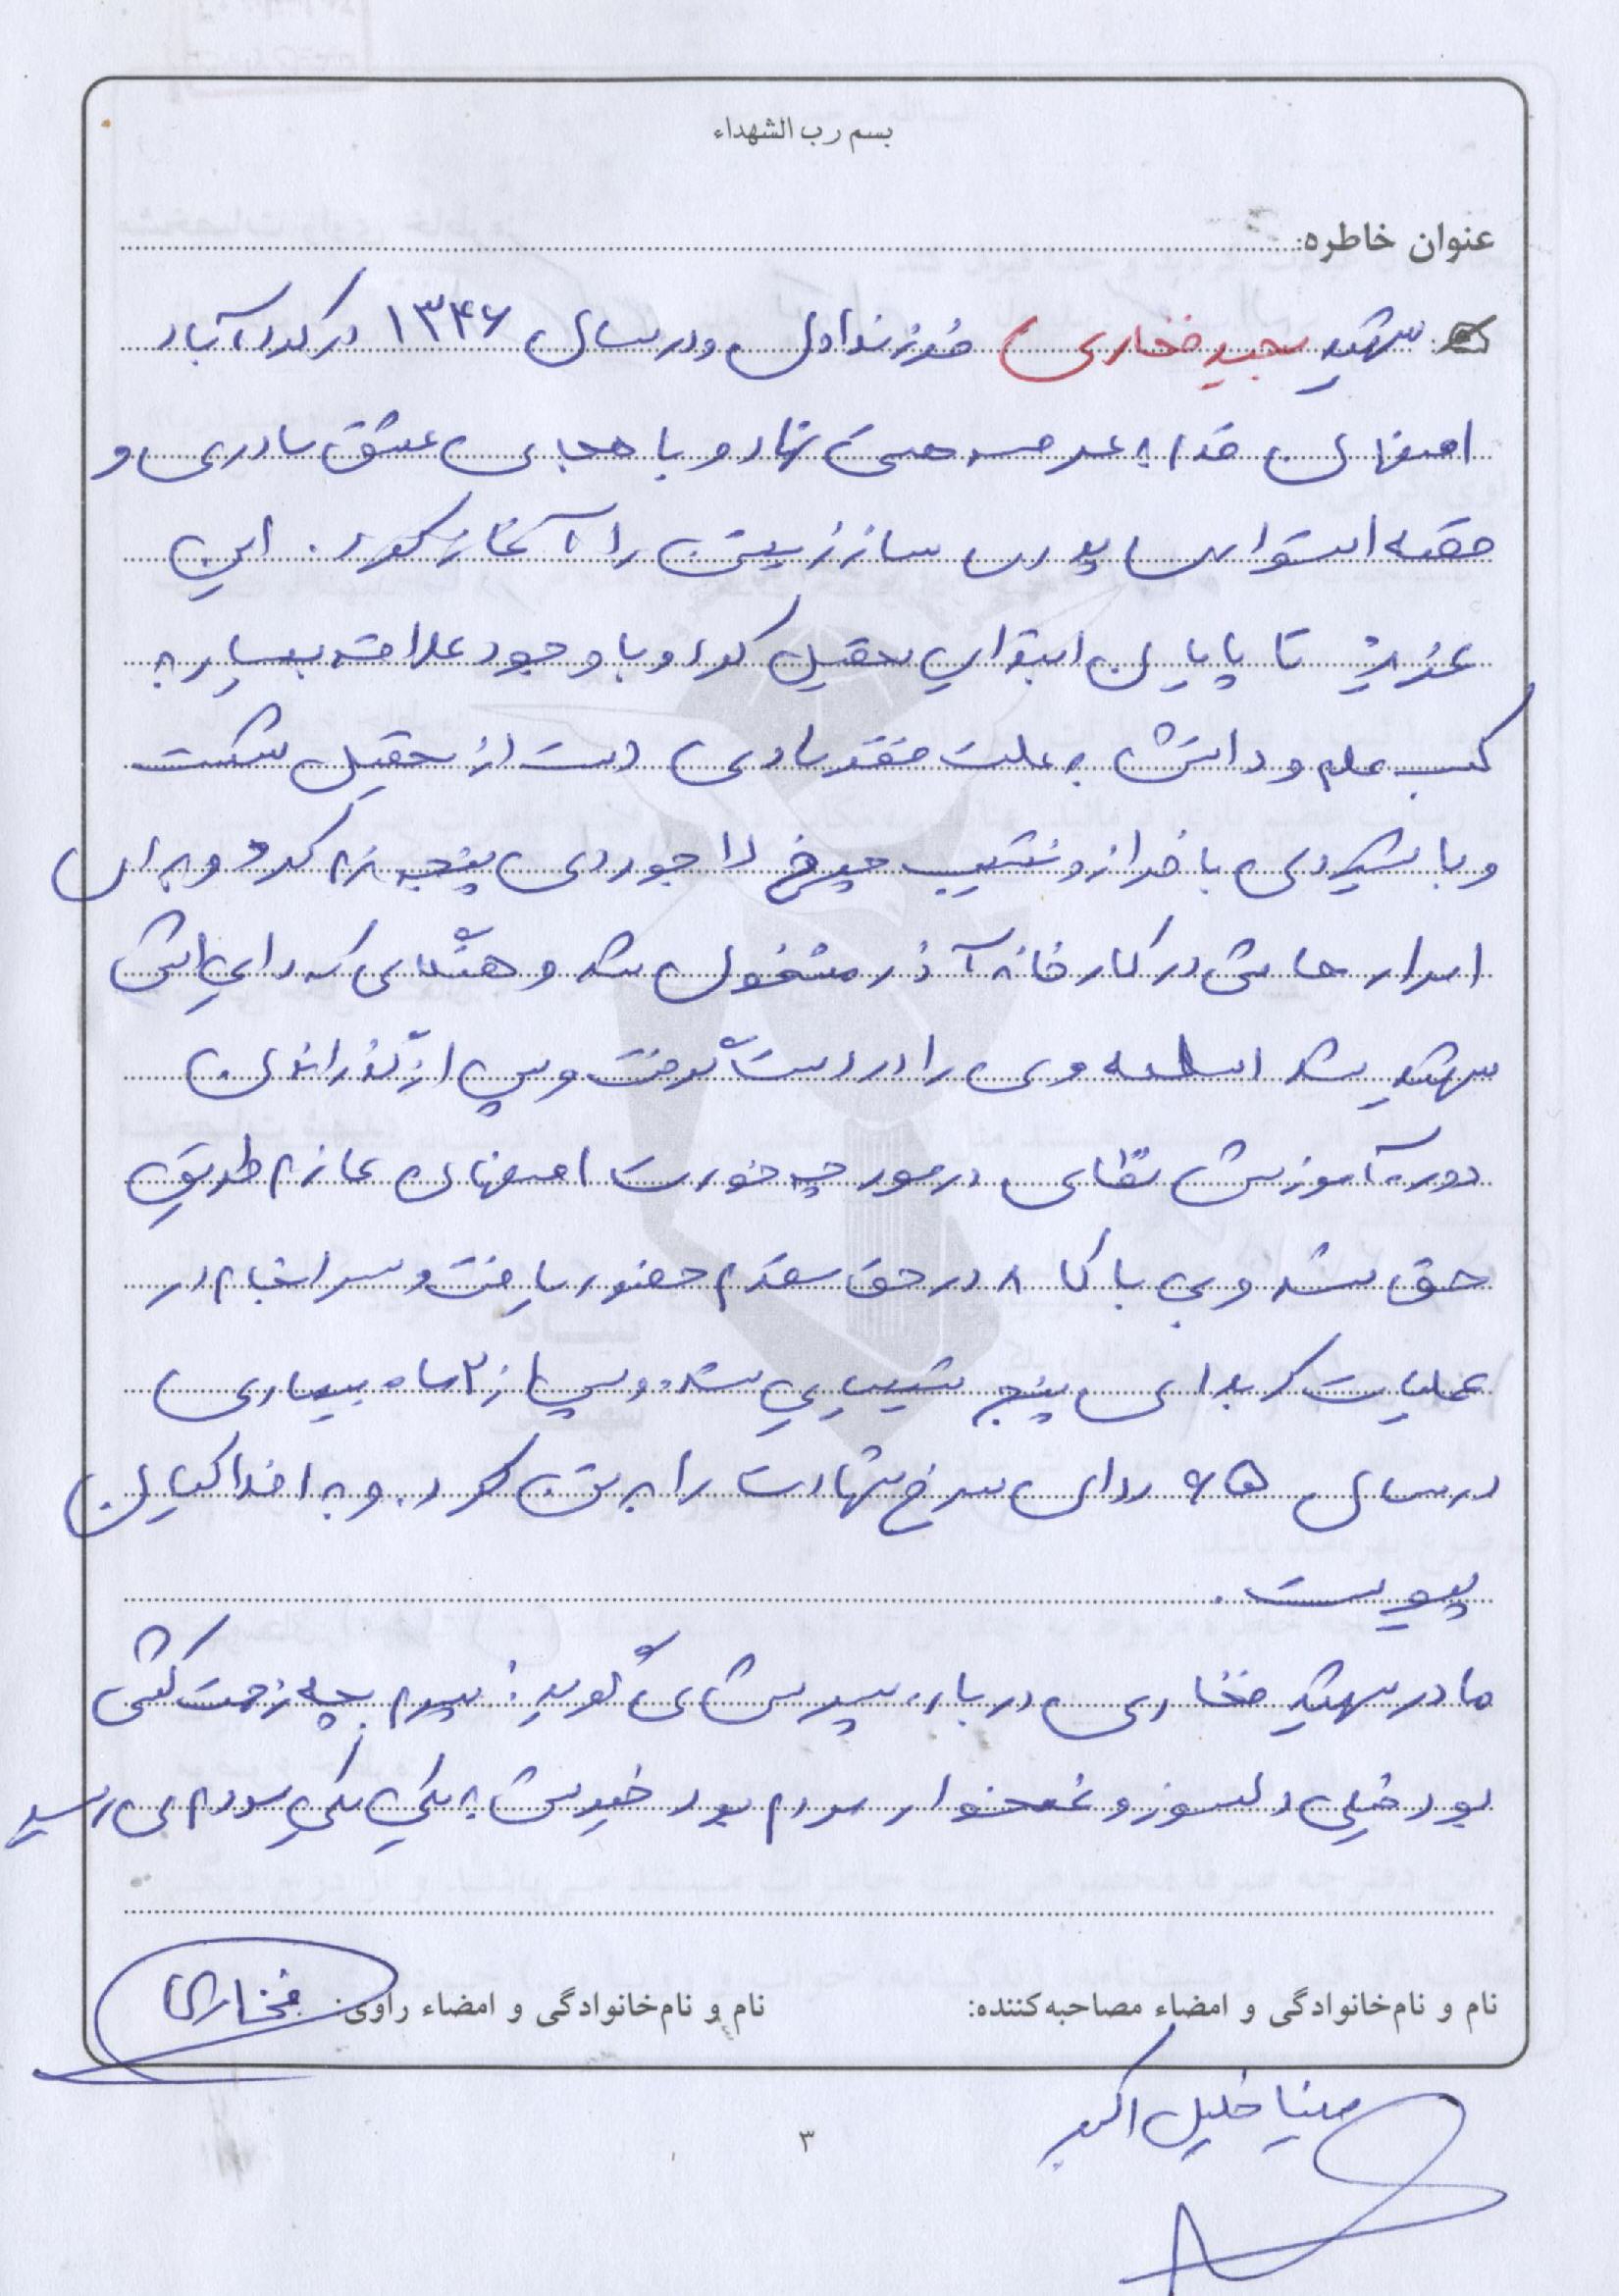 بسم رب الشهداء
عنوان خاطره:
شهید مجید فخاری فرزند اول ودر سال ۱۳۴۶ در کردآباد
اصفهان قدم به عرصه هستی نهاد و با هجای عشق مادری و
قصه استواری پدری ساز زیستن را آغاز کرد. این
عزیز تا پایان ابتدایی تحصیل کرد و با وجود علاقه بسیار به
کسب علم و دانش به علت فقر مادی دست از تحصیل شست
و با مردی با فراز و نشیب چرخ لاجوردی پنجه نرم کرد و برای
امرار معاش در کارخانه آذر مشغول شد و هنگامی که دایی اش
شهید شد اسلحه وی را در دست گرفت و پس از گذراندن
دوره آموزش نظامی در مورچه خورت اصفهان عازم طریق
حق شد و بی باکانه در خط مقدم حضور یافت و سرانجام در
عملیات کربلای پنج شیمیایی شد. و پس از ۳ ماه بیماری
در سال ۶۵ ردای سرخ شهادت را بر تن کرد. و به افلاکیان
پیوست.
مادر شهید فخاری درباره پسرش می گوید: پسرم بچه زحمت کشی
بود خیلی دلسوز و غمخوار مردم بود خیرش به یکی یکی مردم می رسید
نام و نام‌خانوادگی و امضاء مصاحبه‌کننده: نام و نام‌خانوادگی و امضاء راوی: فخاری
خلیل اکبر
۳